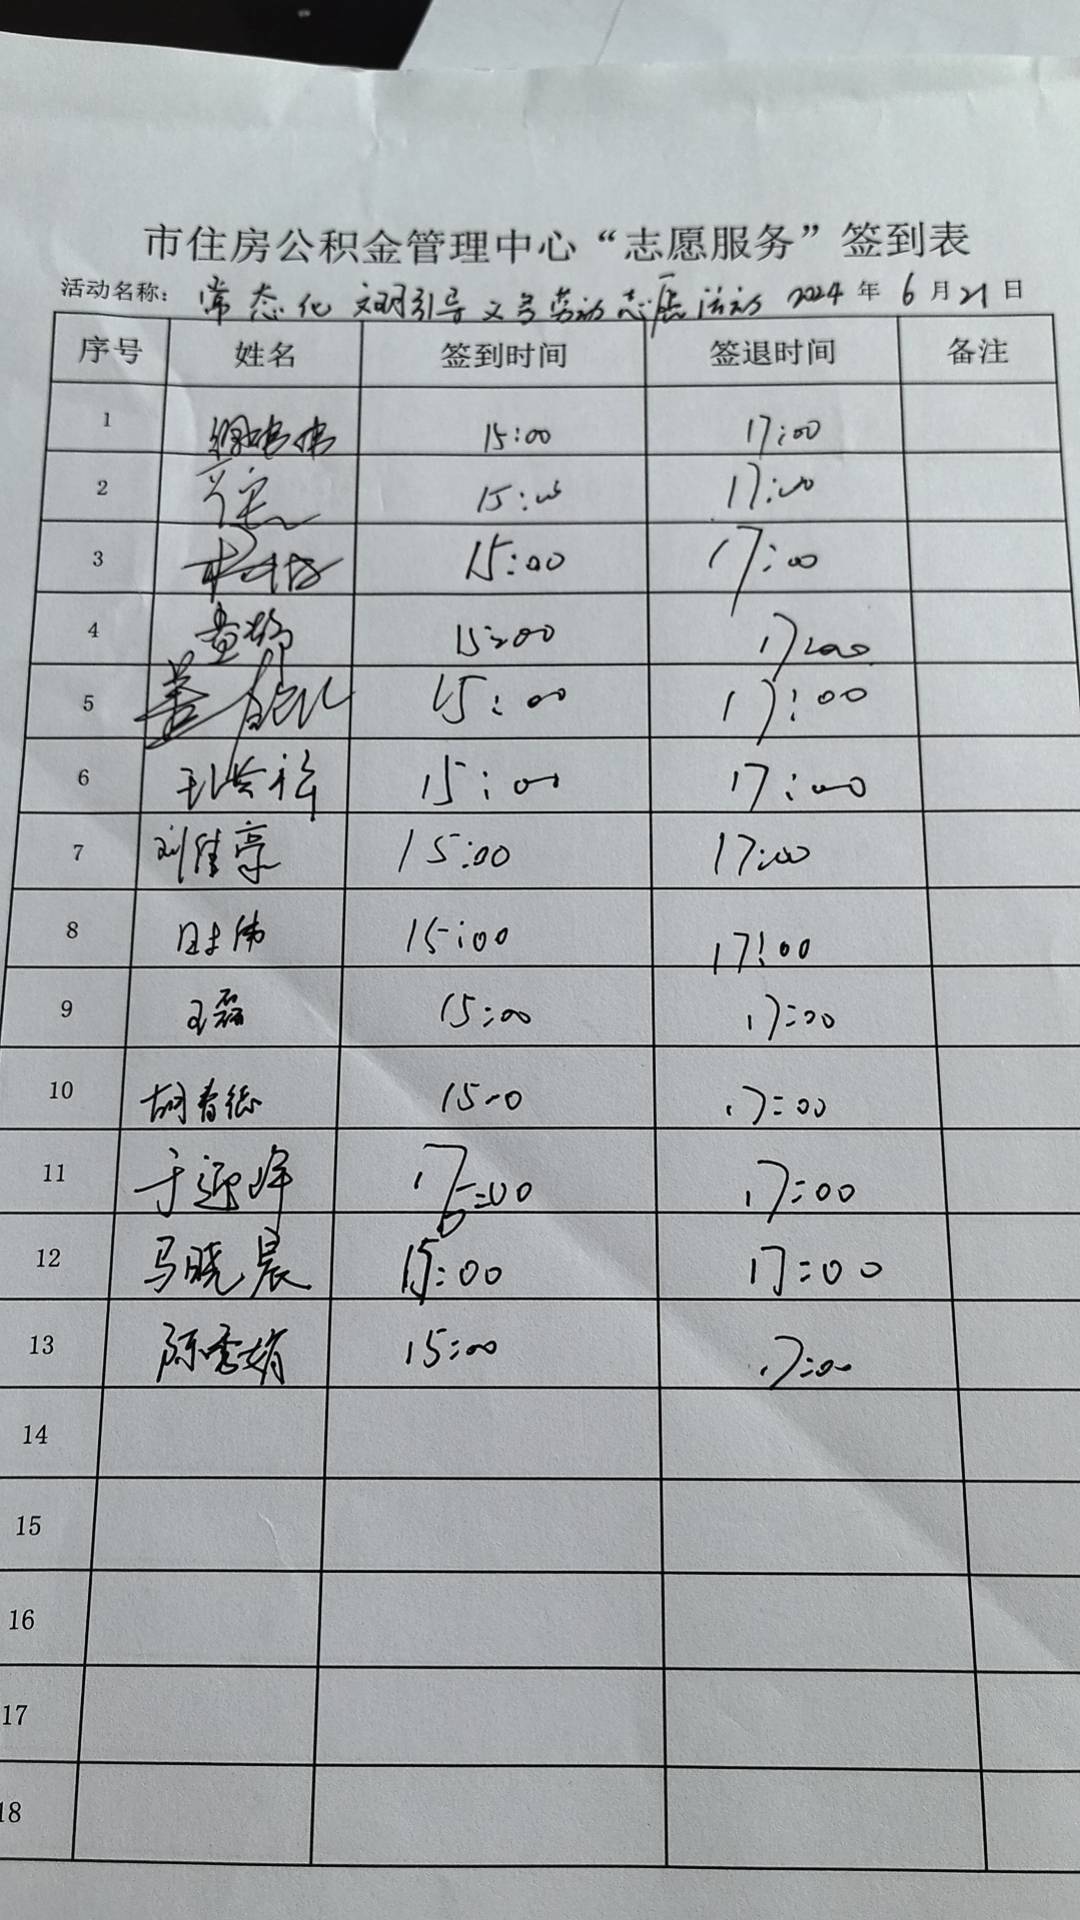 市住房公积金管理中心“志愿服务”签到表
活动名称：常态化文明引导义务劳动志愿活动 2024年6月21日
序号 姓名 签到时间 签退时间 备注
1 15:00 17:00
2 15:00 17:00
3 15:00 17:00
4 15:00 17:00
5 15:00 17:00
6 15:00 17:00
7 刘佳亮 15:00 17:00
8 15:00 17:00
9 王磊 15:00 17:00
10 胡春德 15:0 17:00
11 于迎峰 :00 17:00
12 马晓晨 15:00 17:00
13 陈秀娟 15:00 17:00
14
15
16
17
18